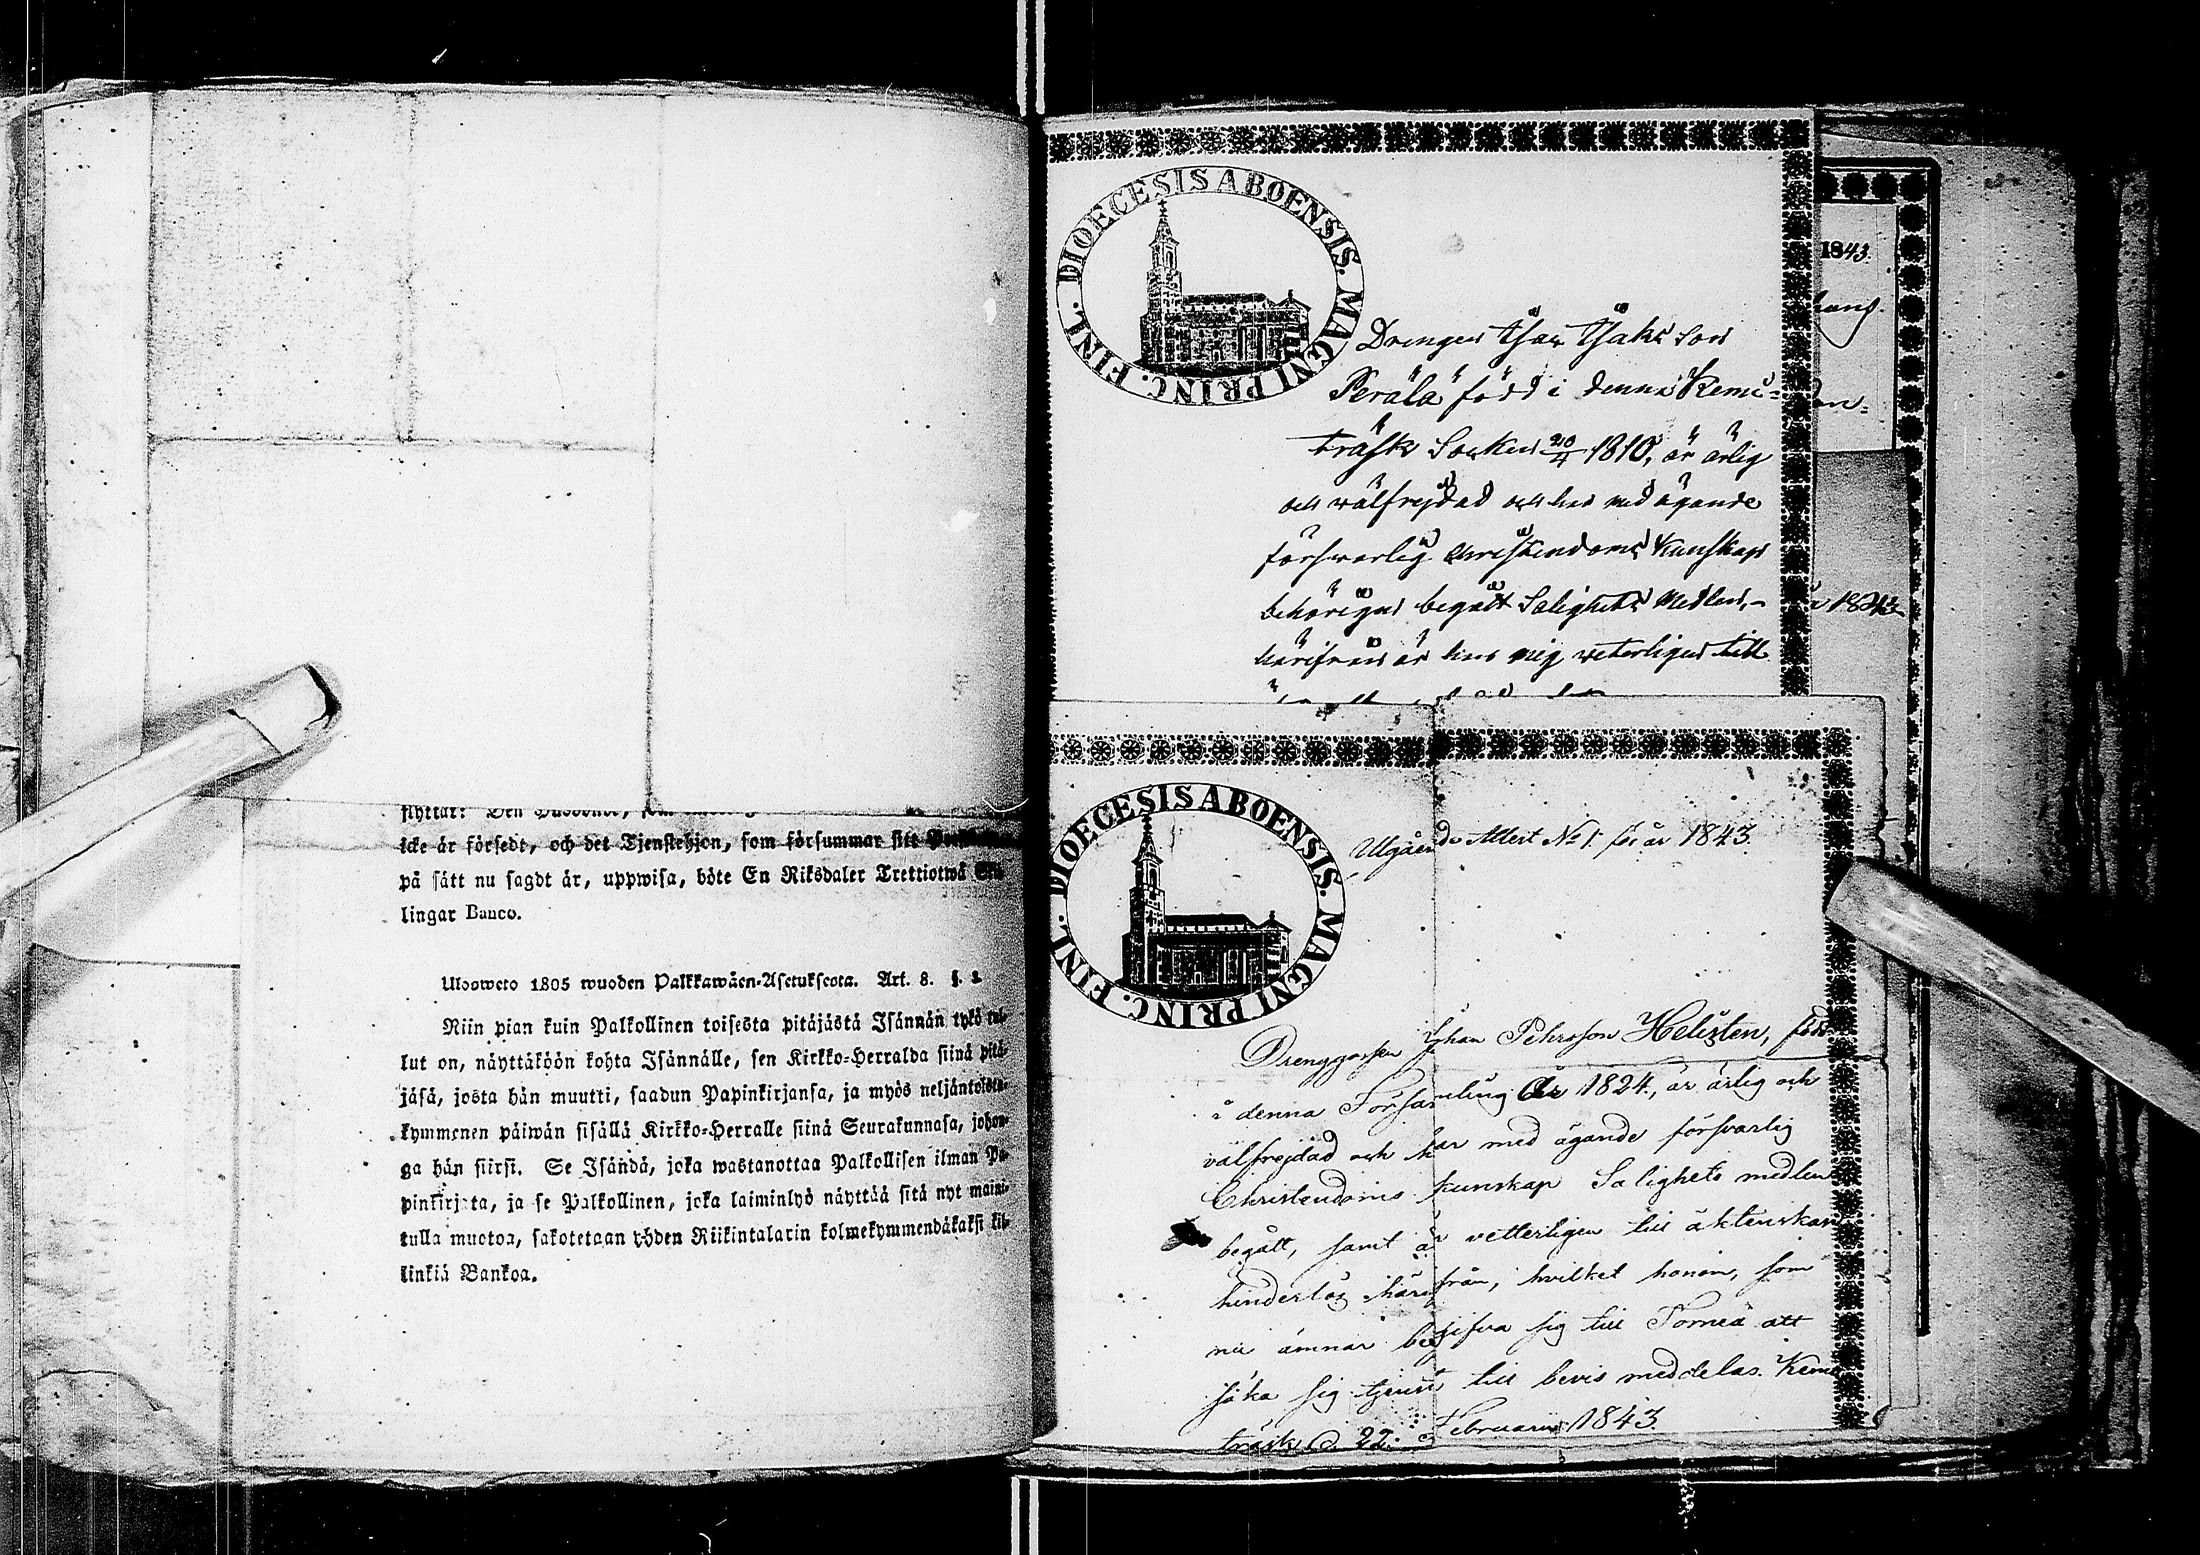 flyttar: Den
icke är försedt, och det Tjenstehjon, som försummar sitt
på sätt nu sagdt är, uppwisa, böte En Riksdaler Trettiotwå
lingar Banco.
Ulosweto 1805 wuoden Palkkawäen-Asetuksesta. Art. 8. §. 3
Niin pian kuin Palkollinen toisesta pitäjästä Isännän tykö tul-
lut on, näyttäköön kohta Isännälle, sen Kirkko-Herralda siinä pitä-
jäsä, josta hän muutti, saadun Papinkirjansa, ja myös neljäntoista-
kymmenen päiwän sisällä Kirkko-Herralle siinä Seurakunnasa, johon-
ga hän siirsi. Se Isändä, joka wastanottaa Palkollisen ilman Pa-
pinkirjata, ja se Palkollinen, joka laiminlyö näyttää sitä nyt maini-
tulla muotoa, sakotetaan yhden Riikintalarin kolmekymmendäkaksi kil-
linkiä Bankoa.
DIOECESIS ABOENSIS. MAGNI PRINC. FINL.
Drengen Isak Isaks Son
Perälä född i denna Kemi-
träsk Socken 20/4 1810, är ärlig
och wälfrejdad och har med ägande
förswarlig Christendoms Kunskap
behörigen begått Salighets Medlen,-
härifrån är han mig weterligen till
1843.
an-
1843
DIOECESIS ABOENSIS. MAGNI PRINC. FINL.
Utgående Attest No 1. för år 1843.
Drenggossen Johan Pehrsson Helisten, född
i denna Församling År 1824, är ärlig och
välfrejdad och har med ägande försvarlig
Christendoms kunskap Salighets medlen
begått, samt är vetterligen till äktenskap
hinderlös härifrån, hvilket honom, som
nu ämnar begifva sig till Torneå att
söka sig tjenst till bevis meddelas. Kemi
träsk d. 22. Februarii 1843.